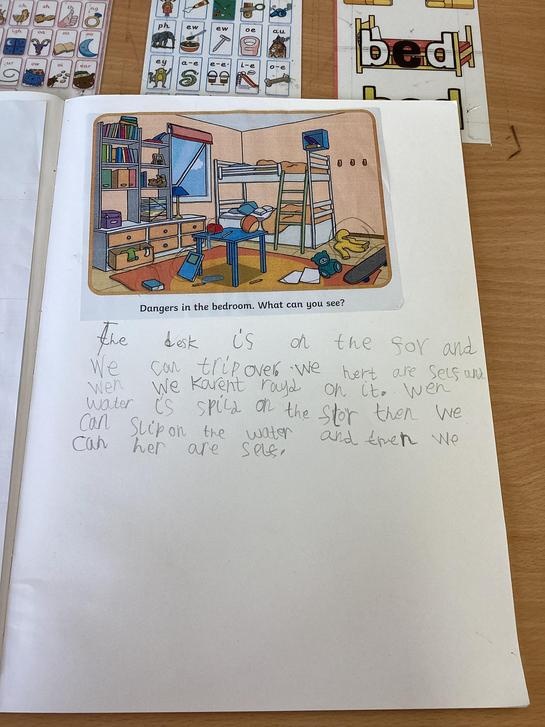 ph ew oe au
ey a-e e-e i-e o-e
bed
Dangers in the bedroom. What can you see?
the desk is on the for and
We can trip over. we hert are self and
wen we karent rayd on it. wen
water is spild on the flor then we
can slip on the water and then we
can her are self.